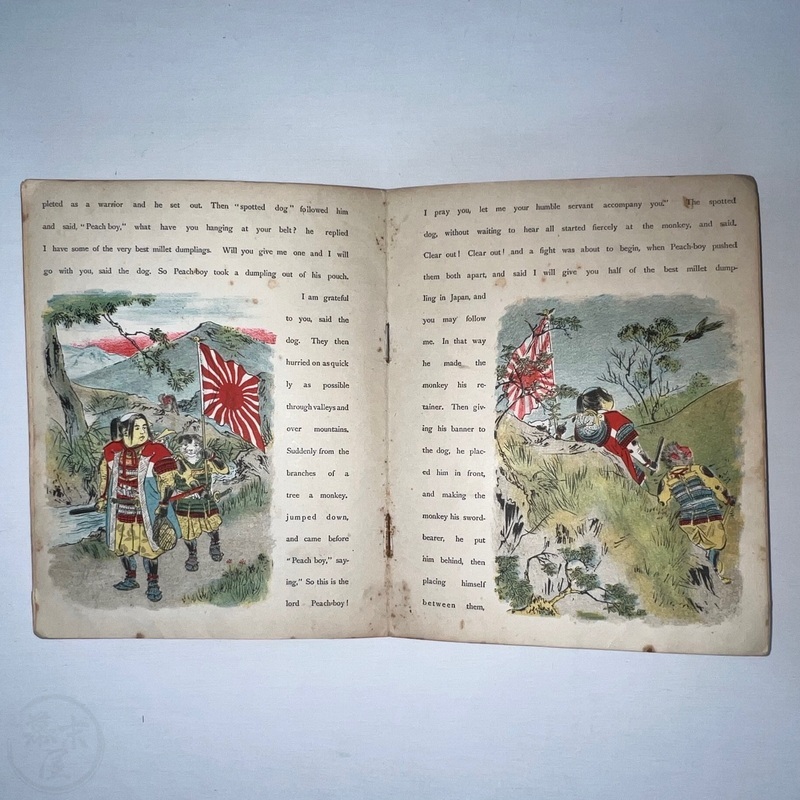 pleted as a warrior and he set out. Then "spotted dog" followed him
and said, "Peach boy," what have you hanging at your belt? he replied
I have some of the very best millet dumplings. Will you give me one and I will
go with you, said the dog. So Peach-boy took a dumpling out of his pouch.
I am grateful
to you, said the
dog. They then
hurried on as quick
ly as possible
through valleys and
over mountains.
Suddenly from the
branches of a
tree a monkey.
jumped down,
and came before
"Peach boy," say-
ing," So this is the
lord Peach-boy!
I pray you, let me your humble servant accompany you." The spotted
dog, without waiting to hear all started fiercely at the monkey, and said,
Clear out! Clear out! and a fight was about to begin, when Peach-boy pushed
them both apart, and said I will give you half of the best millet dump-
ling in Japan, and
you may follow
me. In that way
he made the
monkey his re-
tainer. Then giv-
ing his banner to
the dog, he plac-
ed him in front,
and making the
monkey his sword-
bearer, he put
him behind, then
placing himself
between them,